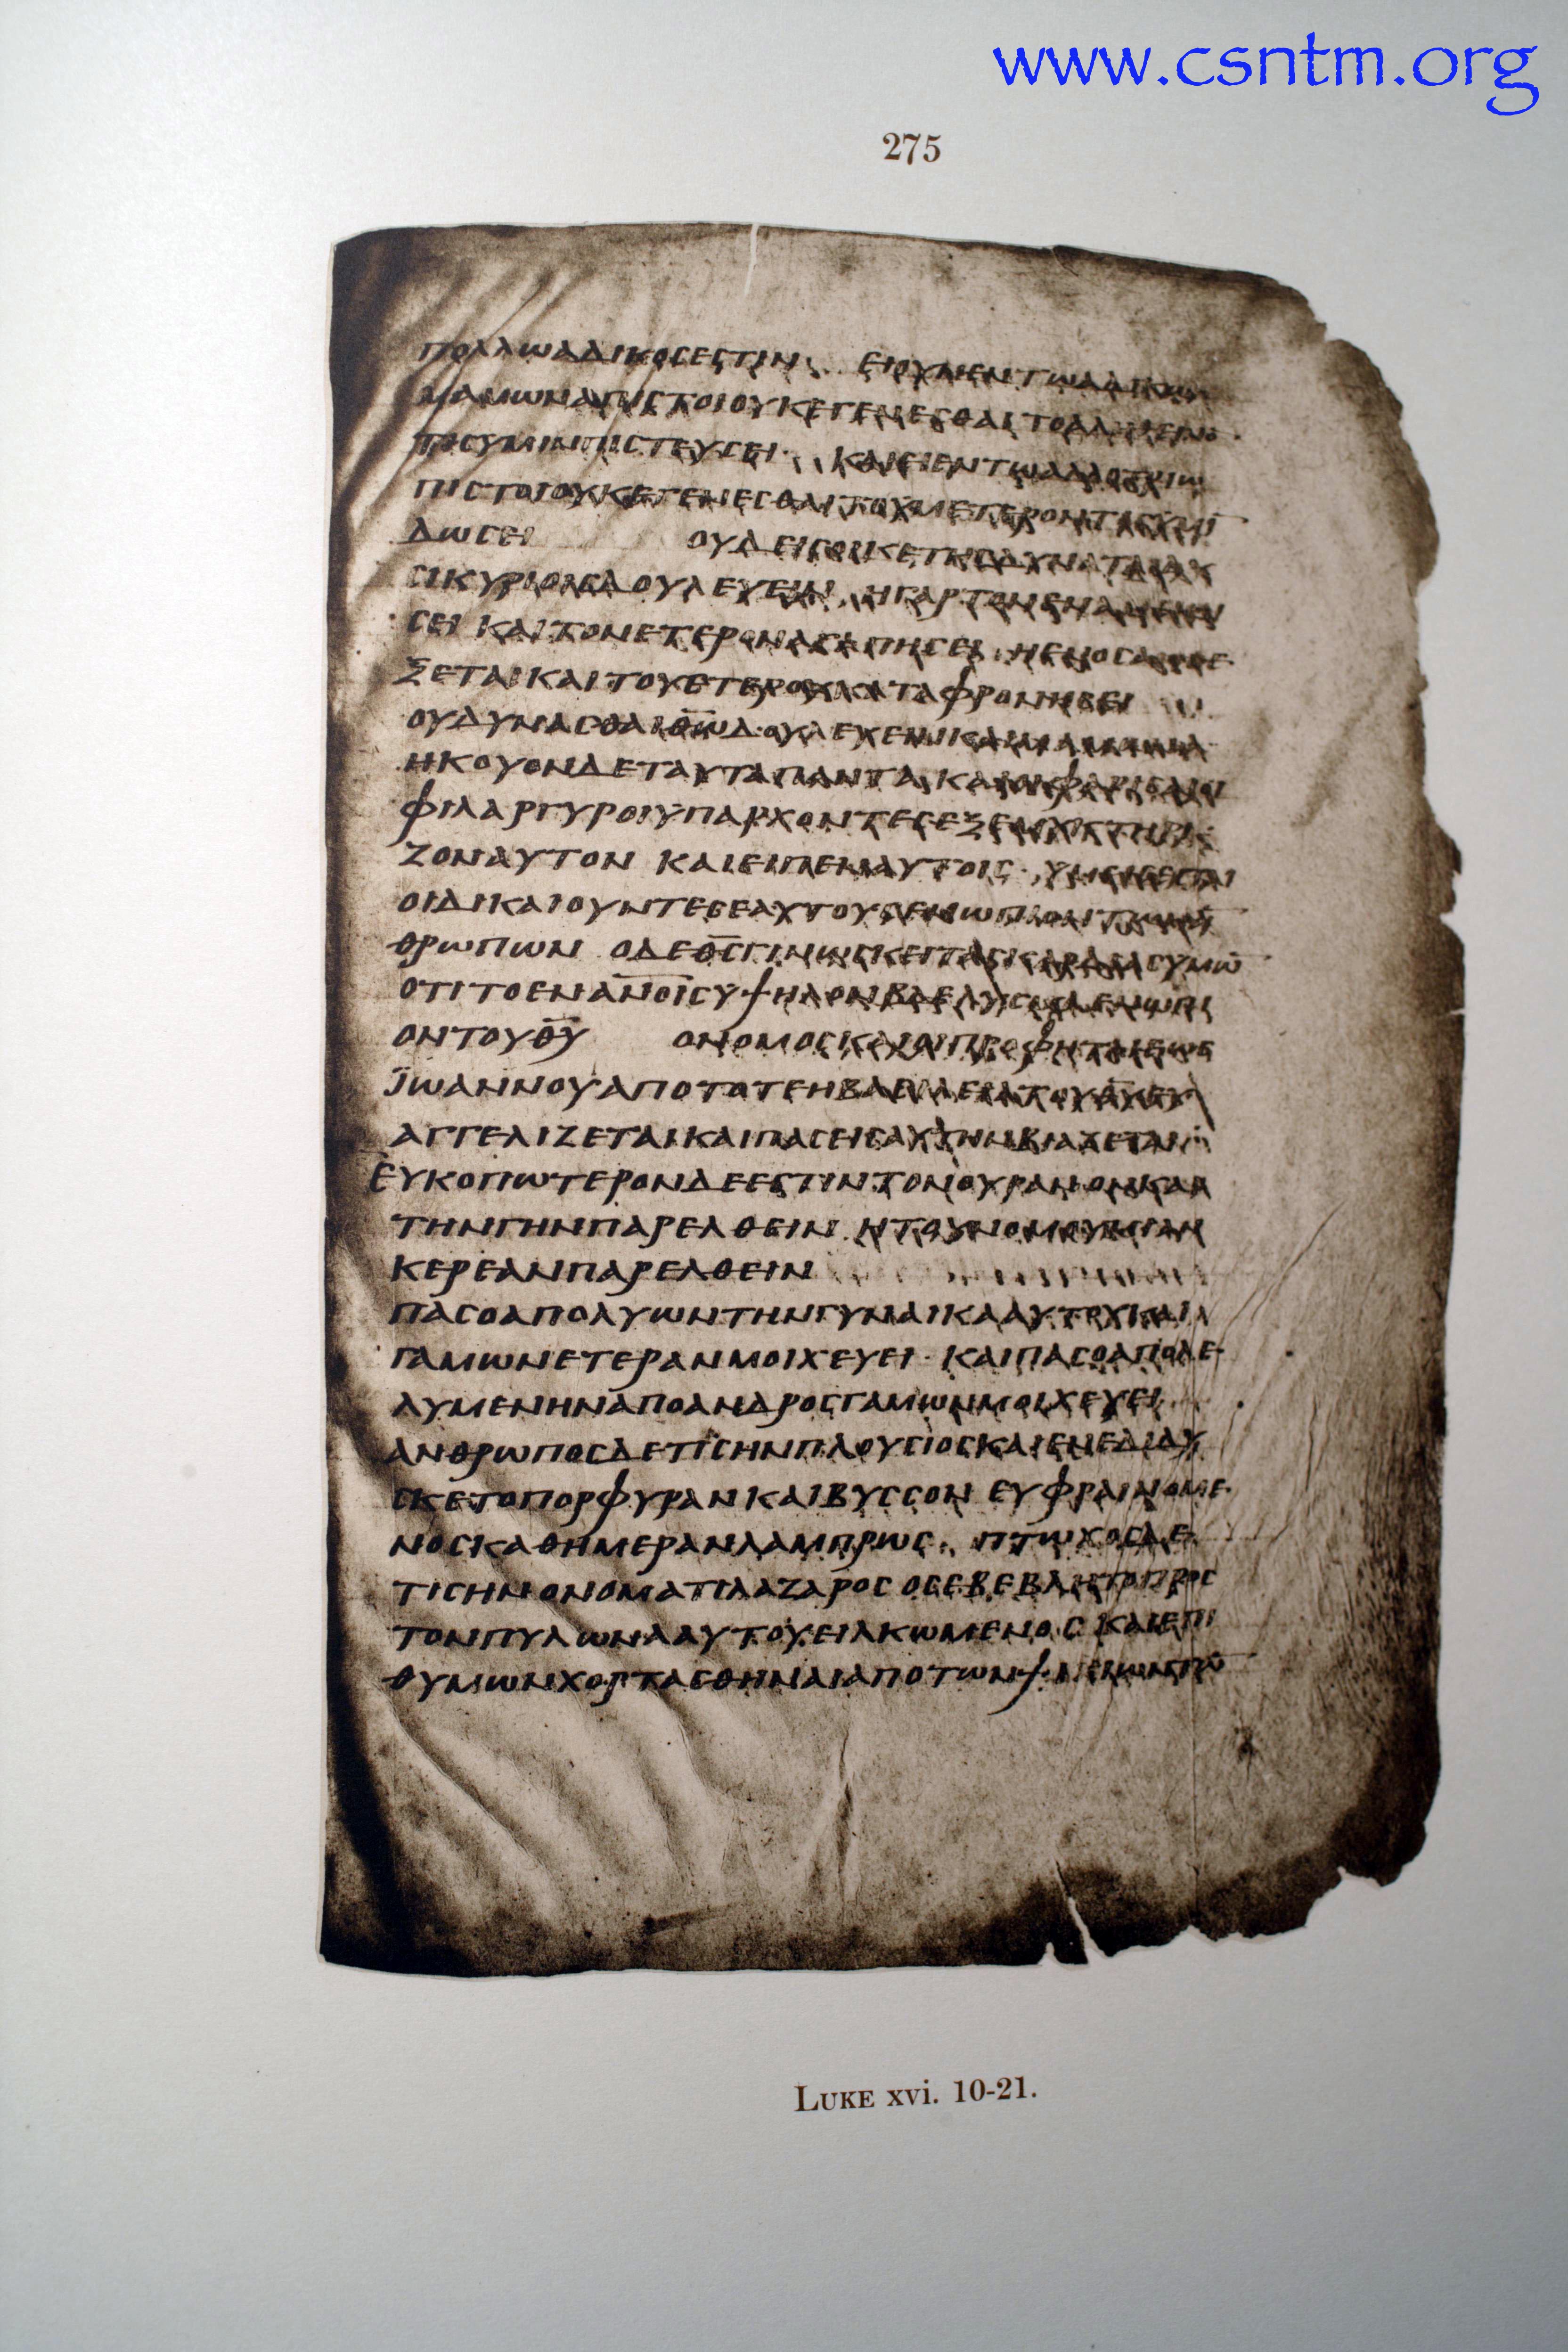 www.csntm.org
275
ΠΟΛΛΩΑΔΙΚΟСΕСΤΙΝ ΕΙΟΥΝΕΝΤΩΑΔΙΚΩ
ΜΑΜΩΝΑΠΙСΤΟΙΟΥΚΕΓΕΝΕСΘΑΙΤΟΑΛΗΘΙΝΟ
ΤΙСΥΜΙΝΠΙСΤΕΥСΕΙ· ΚΑΙΕΙΕΝΤΩΑΛΛΟΤΡΙΩ
ΠΙСΤΟΙΟΥΚΕΓΕΝΕСΘΑΙΤΟΥΜΕΤΕΡΟΝΤΙС
ΔΩСΕΙ ΟΥΔΕΙСΟΙΚΕΤΗСΔΥΝΑΤΑΙΔΥ
СΙΚΥΡΙΟΙСΔΟΥΛΕΥΕΙΝ ΗΓΑΡΤΟΝΕΝΑΜΕΙСΗ
СΕΙ ΚΑΙΤΟΝΕΤΕΡΟΝΑΓΑΠΗСΕΙ ΗΕΝΟСΑΝΘΕ
ΞΕΤΑΙΚΑΙΤΟΥΕΤΕΡΟΥΚΑΤΑΦΡΟΝΗСΕΙ
ΟΥΔΥΝΑСΘΑΙΘ̅Ω̅ΔΟΥΛΕΥΕΙΝΚΑΙΜΑΜΩΝΑ
ΗΚΟΥΟΝΔΕΤΑΥΤΑΠΑΝΤΑΚΑΙΟΙΦΑΡΙСΑΙΟΙ
ΦΙΛΑΡΓΥΡΟΙΥΠΑΡΧΟΝΤΕСΕΞΕΜΥΚΤΗΡΙ
ΖΟΝΑΥΤΟΝ ΚΑΙΕΙΠΕΝΑΥΤΟΙС· ΥΜΕΙСΕСΤΑΙ
ΟΙΔΙΚΑΙΟΥΝΤΕСΕΑΥΤΟΥСΕΝΩΠΙΟΝΤΩΝΑ̅
ΘΡΩΠΩΝ ΟΔΕΘ̅С̅ΓΙΝΩСΚΕΙΤΑСΚΑΡΔΙΑСΥΜΩ̅
ΟΤΙΤΟΕΝΑΝ̅Ο̅Ι̅СΥΨΗΛΟΝΒΔΕΛΥΓΜΑΕΝΩΠΙ
ΟΝΤΟΥΘ̅Υ̅ ΟΝΟΜΟСΚΑΙΟΙΠΡΟΦΗΤΑΙΕΩС
ΪΩΑΝΝΟΥΑΠΟΤΟΤΕΗΒΑСΙΛΕΙΑΤΟΥΘ̅Υ̅ΕΥ
ΑΓΓΕΛΙΖΕΤΑΙΚΑΙΠΑСΕΙСΑΥΤΗΝΒΙΑΖΕΤΑΙ
ΕΥΚΟΠΩΤΕΡΟΝΔΕΕСΤΙΝΤΟΝΟΥΡΑΝΟΝΚΑΙ
ΤΗΝΓΗΝΠΑΡΕΛΘΕΙΝ ΗΤΟΥΝΟΜΟΥΜΙΑΝ
ΚΕΡΕΑΝΠΑΡΕΛΘΕΙΝ
ΠΑСΟΑΠΟΛΥΩΝΤΗΝΓΥΝΑΙΚΑΑΥΤΟΥΚΑΙ
ΓΑΜΩΝΕΤΕΡΑΝΜΟΙΧΕΥΕΙ· ΚΑΙΠΑСΟΑΠΟΛΕ
ΛΥΜΕΝΗΝΑΠΟΑΝΔΡΟСΓΑΜΩΝΜΟΙΧΕΥΕΙ
ΑΝΘΡΩΠΟСΔΕΤΙСΗΝΠΛΟΥСΙΟСΚΑΙΕΝΕΔΙΔΥ
СΚΕΤΟΠΟΡΦΥΡΑΝΚΑΙΒΥССΟΝ ΕΥΦΡΑΙΝΟΜΕ
ΝΟСΚΑΘΗΜΕΡΑΝΛΑΜΠΡΩС· ΠΤΩΧΟСΔΕ
ΤΙСΗΝΟΝΟΜΑΤΙΛΑΖΑΡΟС ΟСΕΒΕΒΛΗΤΟΠΡΟС
ΤΟΝΠΥΛΩΝΑΑΥΤΟΥΕΙΛΚΩΜΕΝΟС ΚΑΙΕΠΙ
ΘΥΜΩΝΧΟΡΤΑСΘΗΝΑΙΑΠΟΤΩΝΨΙΧΙΩΝΤΩ̅
LUKE xvi. 10-21.